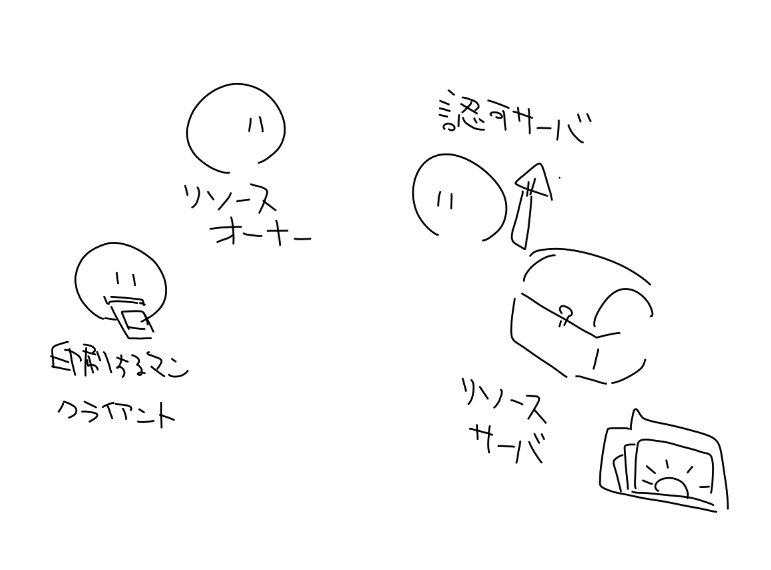 認可サーバ
リソース
オーナー
印刷するマン
クライアント
リソース
サーバ